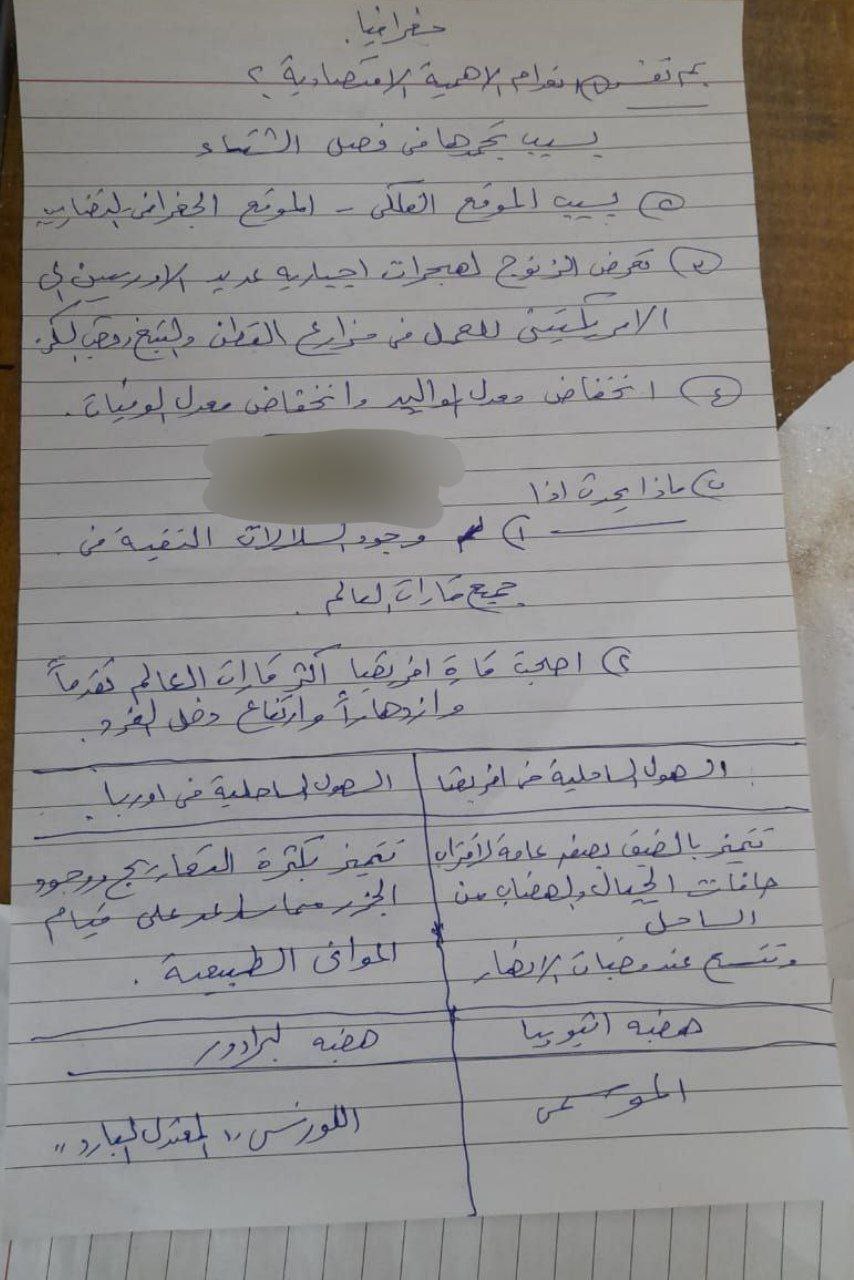 جغرافيا
بم تفسر ① انعدام الاهمية الاقتصادية ؟
بسبب تجمدها فى فصل الشتاء
② بسبب الموقع الفلكى - الموقع الجغرافى - التضاريس
③ تعرض الزنوج لهجرات اجباريه عديد الاوربيين الى
الامريكتين للعمل فى مزارع القطن والتبغ وقصب السكر.
④ انخفاض معدل المواليد وانخفاض معدل الوفيات.
ب) ماذا يحدث اذا
١) وجود السلالات النقية فى
جميع قارات العالم.
٢) اصبحت قارة افريقيا أكثر قارات العالم تقدماً
وازدهاراً وارتفاع دخل الفرد.
السهول الساحلية فى افريقيا
السهول الساحلية فى اوربا.
تتميز بالضيق بصفه عامة لاقتراب
حافات الجبال والهضاب من
الساحل
وتتسع عند مصبات الانهار
تتميز بكثرة التعاريج ووجود
الجزر مما ساعد على قيام
الموانى الطبيعية.
هضبه اثيوبيا
هضبه لبرادور
الموسمى
اللورنسى "المعتدل البارد"